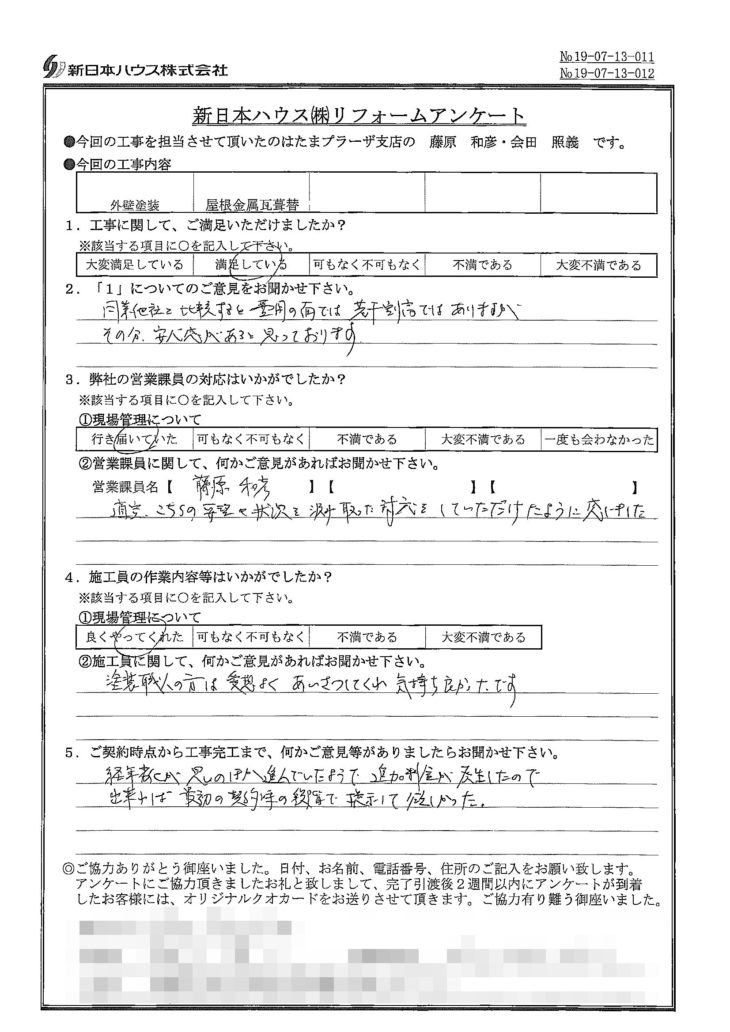 新日本ハウス株式会社
№19-07-13-011
№19-07-13-012
新日本ハウス㈱リフォームアンケート
●今回の工事を担当させて頂いたのはたまプラーザ支店の 藤原 和彦・会田 照義 です。
●今回の工事内容
外壁塗装 屋根金属瓦葺替
1．工事に関して、ご満足いただけましたか？
※該当する項目に○を記入して下さい。
大変満足している 満足している 可もなく不可もなく 不満である 大変不満である
2．「1」についてのご意見をお聞かせ下さい。
同業他社と比較すると費用の面では若干割高ではありますが
その分、安心感があると思っております
3．弊社の営業課員の対応はいかがでしたか？
※該当する項目に○を記入して下さい。
①現場管理について
行き届いていた 可もなく不可もなく 不満である 大変不満である 一度も会わなかった
②営業課員に関して、何かご意見があればお聞かせ下さい。
営業課員名【 藤原 和彦 】【 】【 】
適宜、こちらの要望や状況を汲み取った対応をしていただけたように感じました
4．施工員の作業内容等はいかがでしたか？
※該当する項目に○を記入して下さい。
①現場管理について
良くやってくれた 可もなく不可もなく 不満である 大変不満である
②施工員に関して、何かご意見があればお聞かせ下さい。
塗装職人の方は愛想よくあいさつしてくれ気持ち良かったです
5．ご契約時点から工事完工まで、何かご意見等がありましたらお聞かせ下さい。
経年劣化が思いのほか進んでいたようで追加料金が発生したので
出来れば最初の契約時の段階で提示して欲しかった。
◎ご協力ありがとう御座いました。日付、お名前、電話番号、住所のご記入をお願い致します。
アンケートにご協力頂きましたお礼と致しまして、完了引渡後２週間以内にアンケートが到着
したお客様には、オリジナルクオカードをお送りさせて頂きます。ご協力有り難う御座いました。